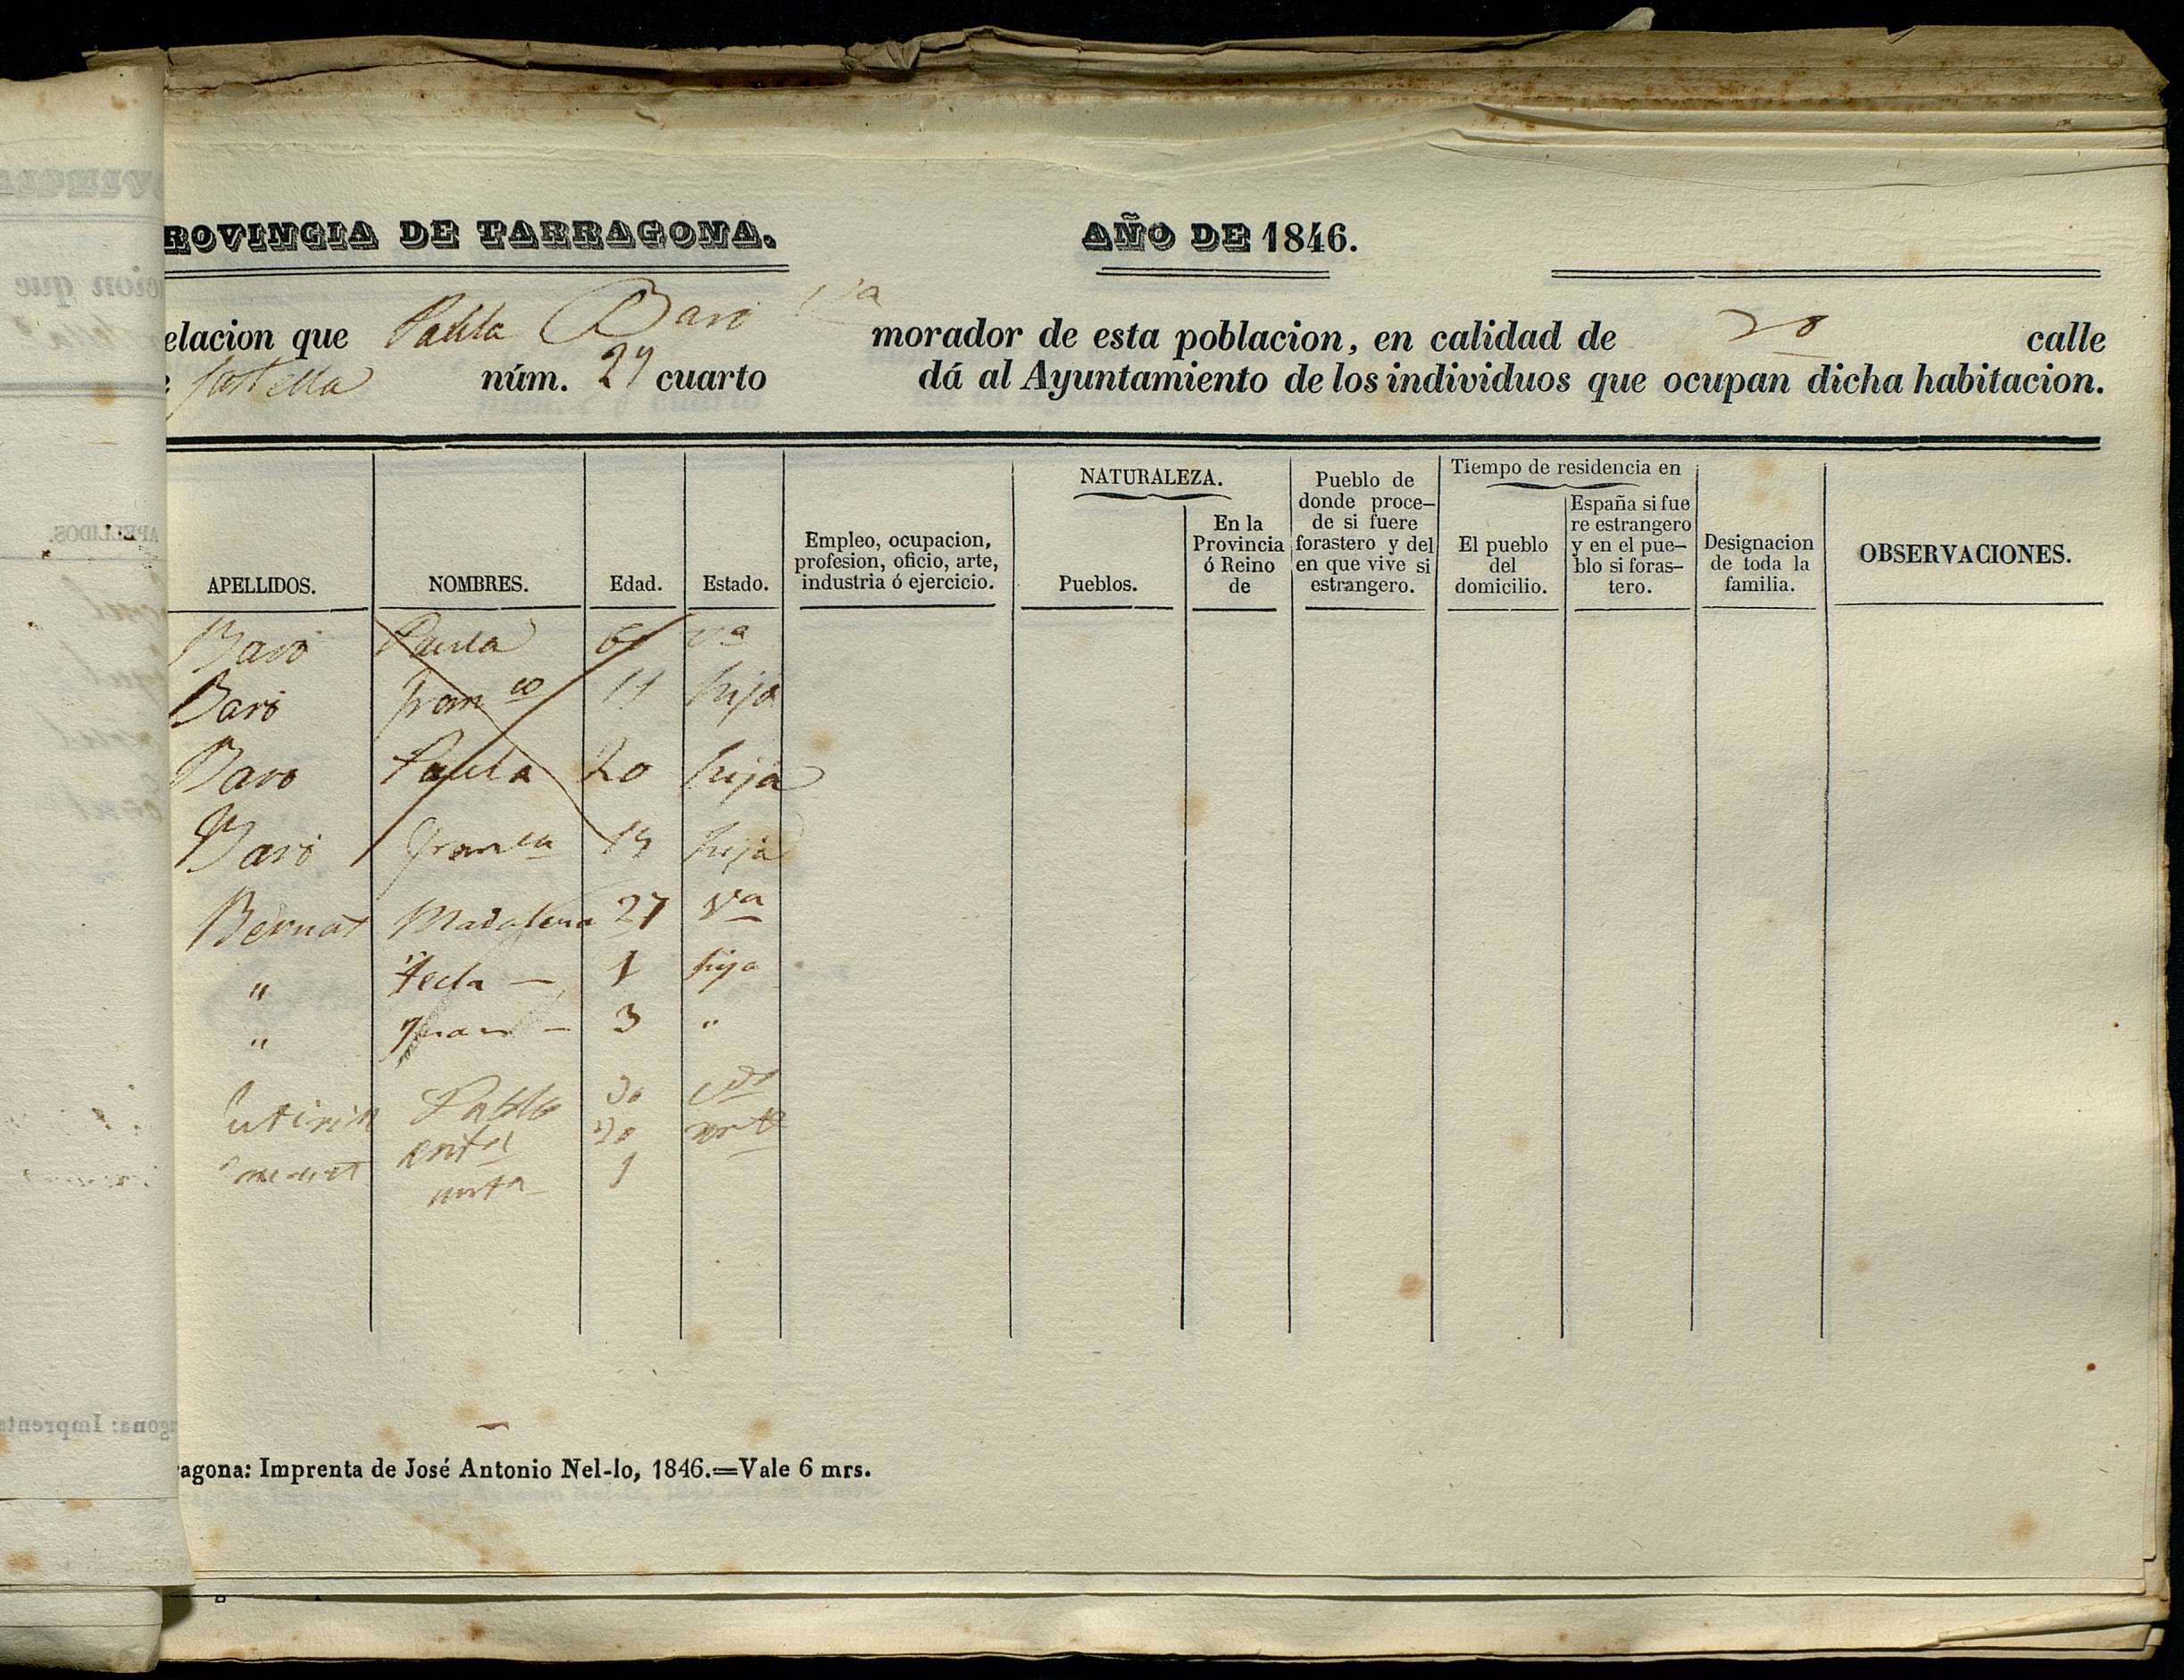 ROVINCIA DE TARRAGONA.
AÑO DE 1846.
elacion que Paula Baró Vª morador de esta poblacion, en calidad de calle
núm. 24 cuarto dá al Ayuntamiento de los individuos que ocupan dicha habitacion.
APELLIDOS.
NOMBRES.
Edad.
Estado.
Empleo, ocupacion,
profesion, oficio, arte,
industria ó ejercicio.
NATURALEZA.
Pueblos.
En la
Provincia
ó Reino
de
Pueblo de
donde proce-
de si fuere
forastero y del
en que vive si
estrangero.
Tiempo de residencia en
El pueblo
del
domicilio.
España si fue
re estrangero
y en el pue-
blo si foras-
tero.
Designacion
de toda la
familia.
OBSERVACIONES.
Baró Paula vª
Baró Franco 11 hijo
Baró Paula 20 hija
Baró Franca hija
Bernat Madalena 27 vª
" Tecla — 1 hija
" Juan — 3 "
Pablo 30
20
1
ragona: Imprenta de José Antonio Nel-lo, 1846.=Vale 6 mrs.